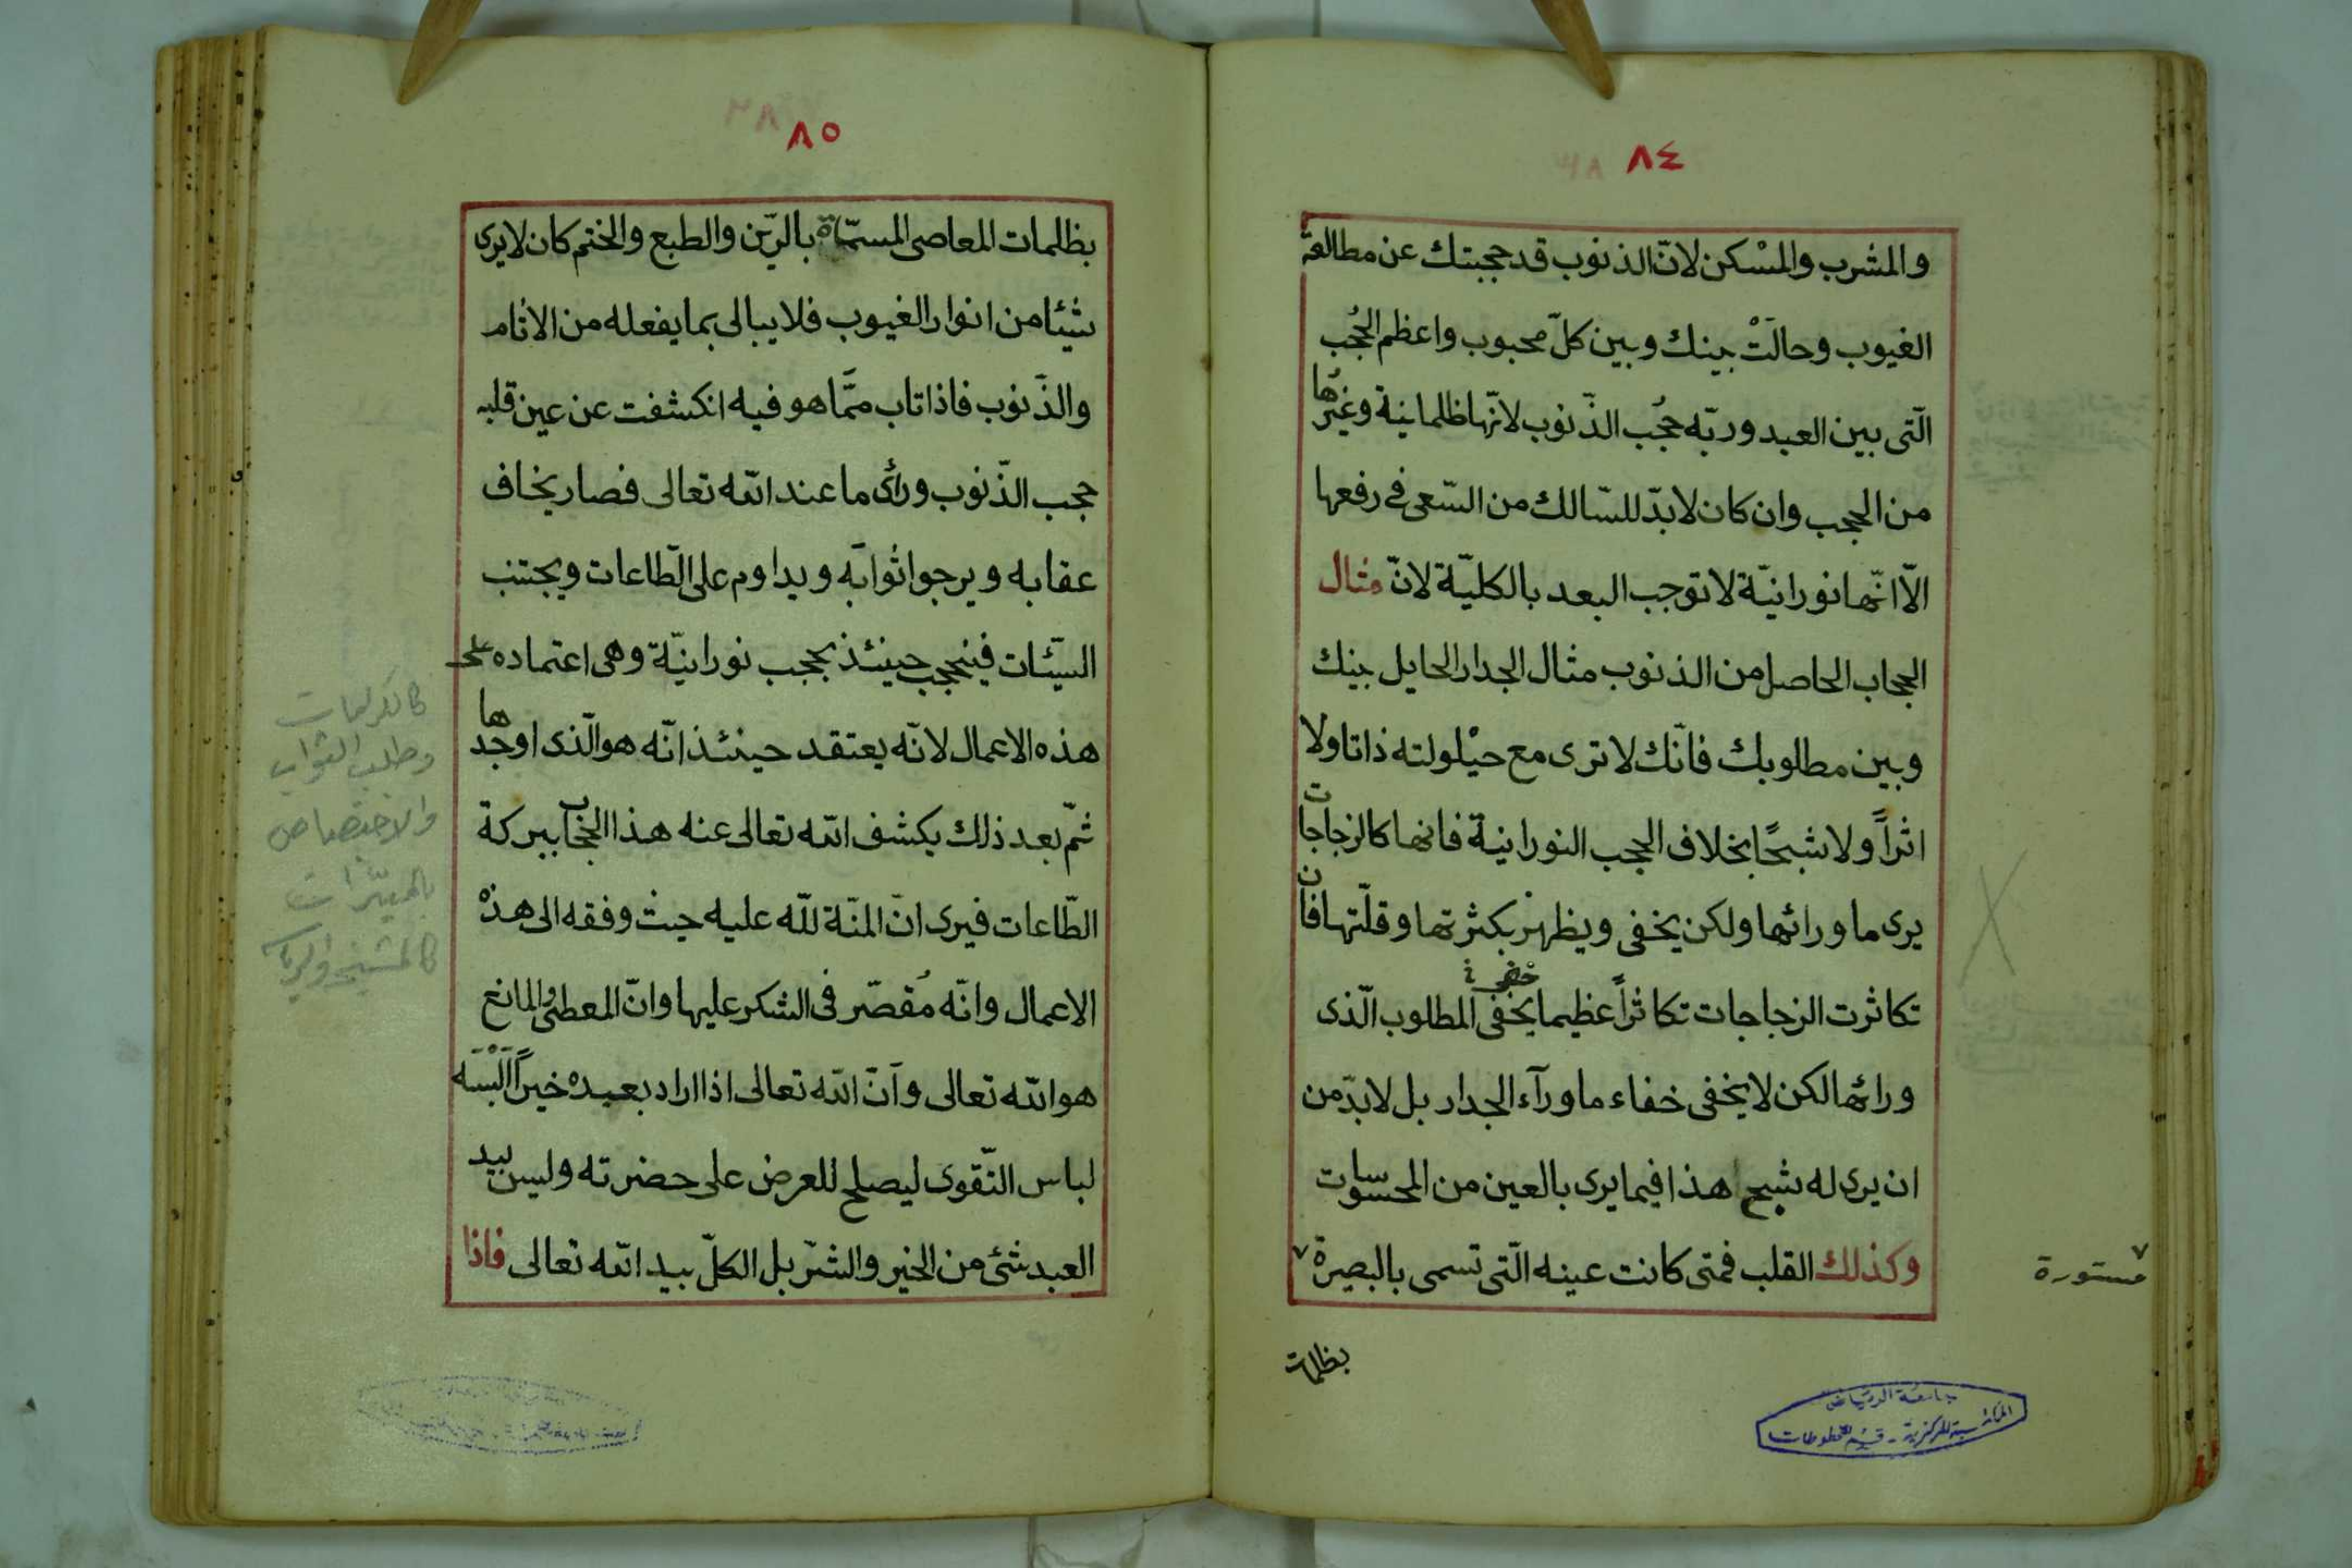 ٨٤
والمشرب والمسْكن لانّ الذنوب قد حجبتك عن مطالعة
الغيوب وحالَتْ بينك وبين كلّ محبوب واعظم الحُجُب
الّتى بين العبد وربّه حُجُب الذّنوب لانّها ظلمانية وغيرُها
من الحجب وان كان لابدّ للسّالك من السّعى فى رفعها
الّا انّها نورانيّة لا توجب البعد بالكليّة لانّ مثال
الحجاب الحاصل من الذنوب مثال الجدار الحايل بينك
وبين مطلوبك فانّك لا ترى مع حيْلولته ذاتا ولا
اثراً ولا شبحًا بخلاف الحجب النورانية فانها كالزجاجات
يرى ما ورائها ولكن يخفى ويظهر بكثرتها وقلّتها فان
تكاثرت الزجاجات تكاثراً عظيما يخفى المطلوب الّذى
خفى
ورائها لكن لا يخفى خفاء ما ورآء الجدار بل لابدّ من
ان يرى له شبح هذا فيما يرى بالعين من المحسوسات
وكذلك القلب فمتى كانت عينه الّتى تسمى بالبصيرة
مستورة
بظلمات
جامعة الرياض
المكتبة المركزية - قسم المخطوطات
٨٥
بظلمات المعاصى المسمّاة بالرّين والطبع والختم كان لا يرى
شيئا من انوار الغيوب فلا يبالى بما يفعله من الاثام
والذّنوب فاذا تاب ممّا هو فيه انكشفت عن عين قلبه
حجب الذّنوب ورأى ما عند الله تعالى فصار يخاف
عقابه ويرجوا ثوابَه ويداوم على الطّاعات ويجتنب
السيّئات فينحجب حينئذ بحجب نورانيّة وهى اعتماده على
هذه الاعمال لانّه يعتقد حينئذ انّه هو الّذى اوجدها
ثمّ بعد ذلك يكشف الله تعالى عنه هذا الحجاب ببركة
الطّاعات فيرى انّ المنّة للّه عليه حيث وفقه الى هذه
الاعمال وانّه مُقصّر فى الشكر عليها وانّ المعطى والمانع
هو الله تعالى وَانّ الله تعالى اذا اراد بعبده خيراً اَلْبَسَه
لباس التّقوى ليصلح للعرض على حضرته وليس بيد
العبد شئ من الخير والشرّ بل الكلّ بيد الله تعالى فاذا
كالكرامات
وطلب الثواب
والاختصاص